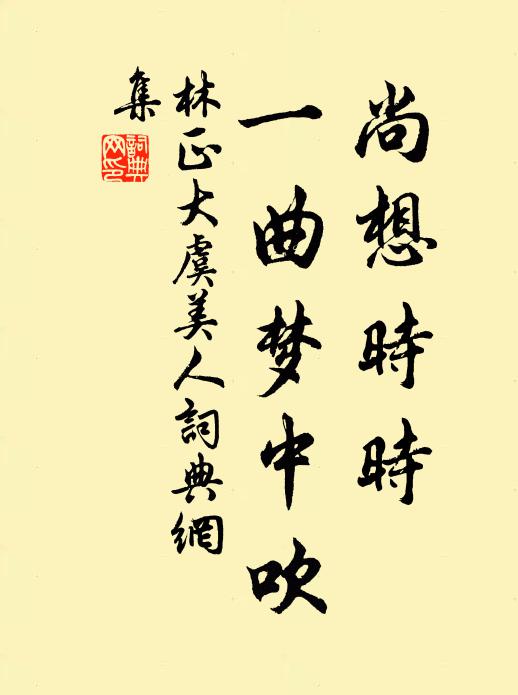 尚想時時
一曲梦中吹
林正大虞美人詞典網
集
詞典網印